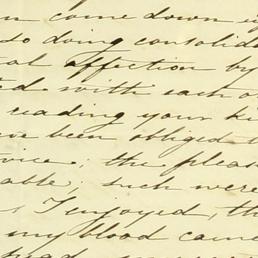 come down
so doing consolida
al affection by
ed with each o
reading your ki
ve been obliged
vice; the pleas
able, such were
I enjoyed, th
my blood came
head